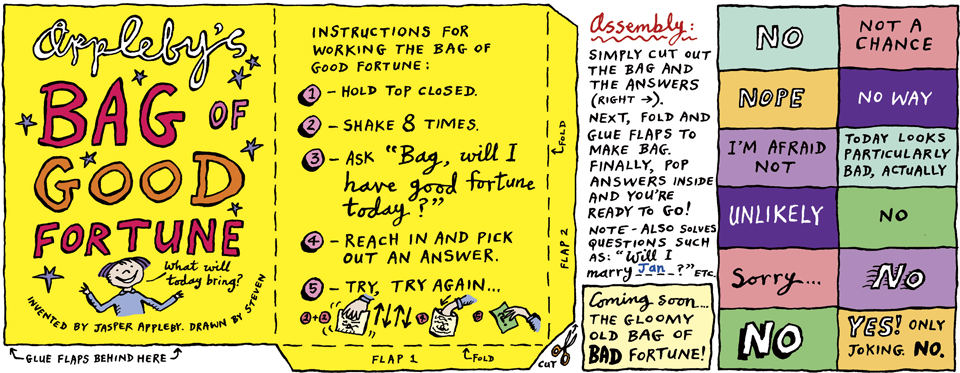 Appleby's
BAG OF
GOOD
FORTUNE
What will
today bring?
INVENTED BY JASPER APPLEBY. DRAWN BY STEVEN
GLUE FLAPS BEHIND HERE
INSTRUCTIONS FOR
WORKING THE BAG OF
GOOD FORTUNE:
1 - HOLD TOP CLOSED.
2 - SHAKE 8 TIMES.
3 - ASK "Bag, will I
have good fortune
today?"
4 - REACH IN AND PICK
OUT AN ANSWER.
5 - TRY, TRY AGAIN...
1+2
FLAP 1
FOLD
FOLD
FLAP 2
CUT
Assembly:
SIMPLY CUT OUT
THE BAG AND
THE ANSWERS
(RIGHT →).
NEXT, FOLD AND
GLUE FLAPS TO
MAKE BAG.
FINALLY, POP
ANSWERS INSIDE
AND YOU'RE
READY TO GO!
NOTE - ALSO SOLVES
QUESTIONS SUCH
AS: "Will I
marry Jan?" ETC.
Coming soon...
THE GLOOMY
OLD BAG OF
BAD FORTUNE!
NO
NOT A
CHANCE
NOPE
NO WAY
I'M AFRAID
NOT
TODAY LOOKS
PARTICULARLY
BAD, ACTUALLY
UNLIKELY
NO
Sorry....
NO
NO
YES! ONLY
JOKING. NO.